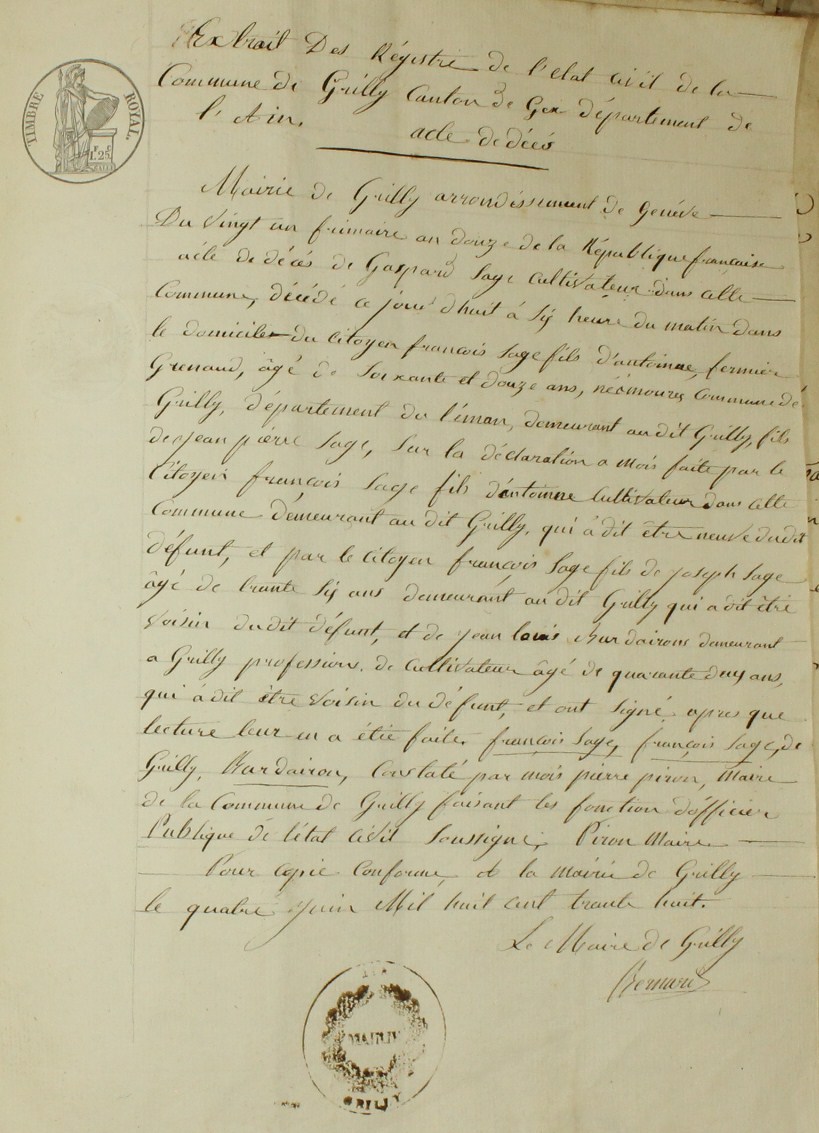 TIMBRE ROYAL.
1F. 25C.
Extrait Des Régistre de l'etat civil de la
Commune de Grilly Canton de Gex département de
l'Ain.
acte de décés
Mairie de Grilly arrondissement de Genéve
Du vingt un frimaire an douze de la République française
acte de décés de Gaspard Sage Cultivateur dans cette
Commune, décédé ce jour d'huit à sij heure du matin dans
le domicile du Citoyen françois Sage fils d'antoinne, fermier
Grenaud, âgé de Soixante et douze ans, Commune dé
Grilly, département du l'éman, demeurant au dit Grilly, fils
de jean piérre Sage, Sur la déclaration a mois faite par le
Citoyen françois Sage fils d'antoinne Cultivateur dans cette
Commune démeurant au dit Grilly, qui à dit être neuve dudit
défunt, et par le Citoyen françois Sage fils de joseph Sage
âgé de trante sij ans demeurant au dit Grilly qui a dit être
Voisin dudit défunt, et de jean louis Bardairon demeurant
a Grilly profession de Cultivateur âgé de quarante deuy ans,
qui à dit être Voisin du défunt, et ont signé apres que
lecture leur en a étie faite. françois Sage, françois Sage, de
Grilly, Bardairon, Constaté par mois pierre piron, Maire
de la Commune de Grilly faisant les fonction d'officier
Publique de l'état Civil Soussigné, Piron Maire
Pour copie Conforme, à la Mairie de Grilly
le quatre Juin Mil huit cent trante huit.
Le Maire de Grilly
Bernard
MAIRIE
GRILLY